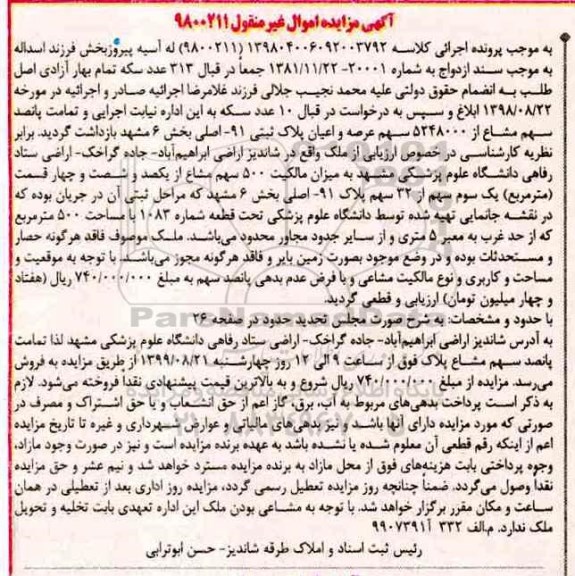 آگهی مزایده اموال غیرمنقول ۹۸۰۰۲۱۱
به موجب پرونده اجرائی کلاسه ۱۳۹۸۰۴۰۰۶۰۹۲۰۰۳۷۹۲ (۹۸۰۰۲۱۱) له آسیه پیروزبخش فرزند اسداله
به موجب سند ازدواج به شماره ۲۰۰۰۱-۱۳۸۱/۱۱/۲۲ جمعاً در قبال ۳۱۳ عدد سکه تمام بهار آزادی اصل
طلب به انضمام حقوق دولتی علیه محمد نجیب جلالی فرزند غلامرضا اجرائیه صادر و اجرائیه در مورخه
۱۳۹۸/۰۸/۲۲ ابلاغ و سپس به درخواست در قبال ۱۰ عدد سکه به این اداره نیابت اجرایی و تمامت پانصد
سهم مشاع از ۵۲۴۸۰۰۰ سهم عرصه و اعیان پلاک ثبتی ۹۱- اصلی بخش ۶ مشهد بازداشت گردید. برابر
نظریه کارشناسی در خصوص ارزیابی از ملک واقع در شاندیز اراضی ابراهیم‌آباد- جاده گراخک- اراضی ستاد
رفاهی دانشگاه علوم پزشکی مشهد به میزان مالکیت ۵۰۰ سهم مشاع از یکصد و شصت و چهار قسمت
(مترمربع) یک سوم سهم از ۳۲ سهم پلاک ۹۱- اصلی بخش ۶ مشهد که مراحل ثبتی آن در جریان بوده که
در نقشه جانمایی تهیه شده توسط دانشگاه علوم پزشکی تحت قطعه شماره ۱۰۸۳ با مساحت ۵۰۰ مترمربع
که از حد غرب به معبر ۵ متری و از سایر حدود مجاور محدود می‌باشد. ملک موصوف فاقد هرگونه حصار
و مستحدثات بوده و در وضع موجود بصورت زمین بایر و فاقد هرگونه مجوز می‌باشد. با توجه به موقعیت و
مساحت و کاربری و نوع مالکیت مشاعی و با فرض عدم بدهی پانصد سهم به مبلغ ۷۴۰/۰۰۰/۰۰۰ ریال (هفتاد
و چهار میلیون تومان) ارزیابی و قطعی گردید.
با حدود و مشخصات: به شرح صورت مجلس تحدید حدود در صفحه ۲۶
به آدرس شاندیز اراضی ابراهیم‌آباد- جاده گراخک- اراضی ستاد رفاهی دانشگاه علوم پزشکی مشهد لذا تمامت
پانصد سهم مشاع پلاک فوق از ساعت ۹ الی ۱۲ روز چهارشنبه ۱۳۹۹/۰۸/۲۱ از طریق مزایده به فروش
می‌رسد. مزایده از مبلغ ۷۴۰/۰۰۰/۰۰۰ ریال شروع و به بالاترین قیمت پیشنهادی نقداً فروخته می‌شود. لازم
به ذکر است پرداخت بدهی‌های مربوط به آب، برق، گاز اعم از حق انشعاب و یا حق اشتراک و مصرف در
صورتی که مورد مزایده دارای آنها باشد و نیز بدهی‌های مالیاتی و عوارض شهرداری و غیره تا تاریخ مزایده
اعم از اینکه رقم قطعی آن معلوم شده یا نشده باشد به عهده برنده مزایده است و نیز در صورت وجود مازاد،
وجوه پرداختی بابت هزینه‌های فوق از محل مازاد به برنده مزایده مسترد خواهد شد و نیم عشر و حق مزایده
نقداً وصول می‌گردد. ضمناً چنانچه روز مزایده تعطیل رسمی گردد، مزایده روز اداری بعد از تعطیلی در همان
ساعت و مکان مقرر برگزار خواهد شد. با توجه به مشاعی بودن ملک این اداره تعهدی بابت تخلیه و تحویل
ملک ندارد. م.الف ۳۳۲ آ۹۹۰۷۳۹۱
رئیس ثبت اسناد و املاک طرقبه شاندیز- حسن ابوترابی
ParsNamadData